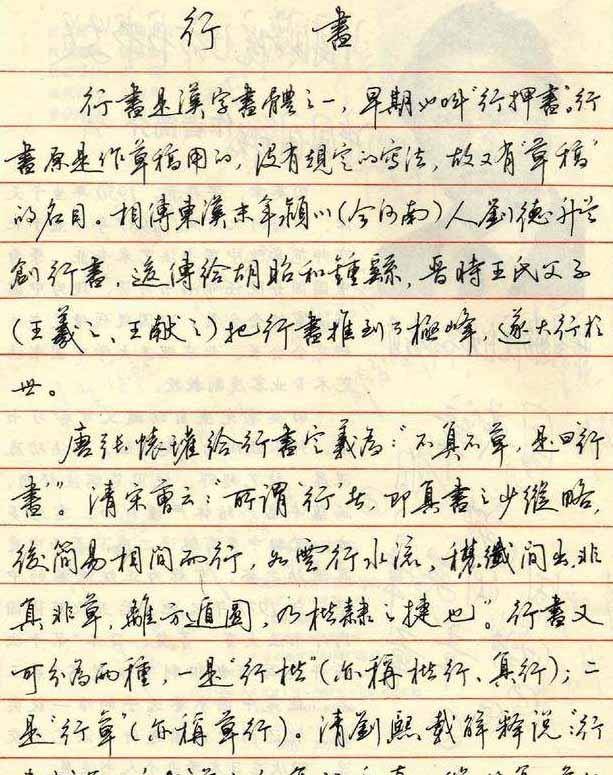 行書
行書是漢字書體之一，早期也叫“行押書”。行
書原是作草稿用的，沒有規定的寫法，故又有“草稿”
的名目。相傳東漢末年潁川（今河南）人劉德升始
創行書，遂傳給胡昭和鍾繇，晉時王氏父子
（王羲之、王献之）把行書推到了極峰，遂大行於
世。
唐張懷瓘給行書定義為：“不真不草，是曰‘行
書’”。清宋曹云：“所謂‘行’者，即真書之少縱略，
後簡易相間而行，如雲行水流，穠纖間出，非
真非草，離方遁圓，乃楷隸之捷也”。行書又
可分為兩種，一是“行楷”（亦稱楷行、真行）；二
是“行草”（亦稱草行）。清劉熙載解释說：“行